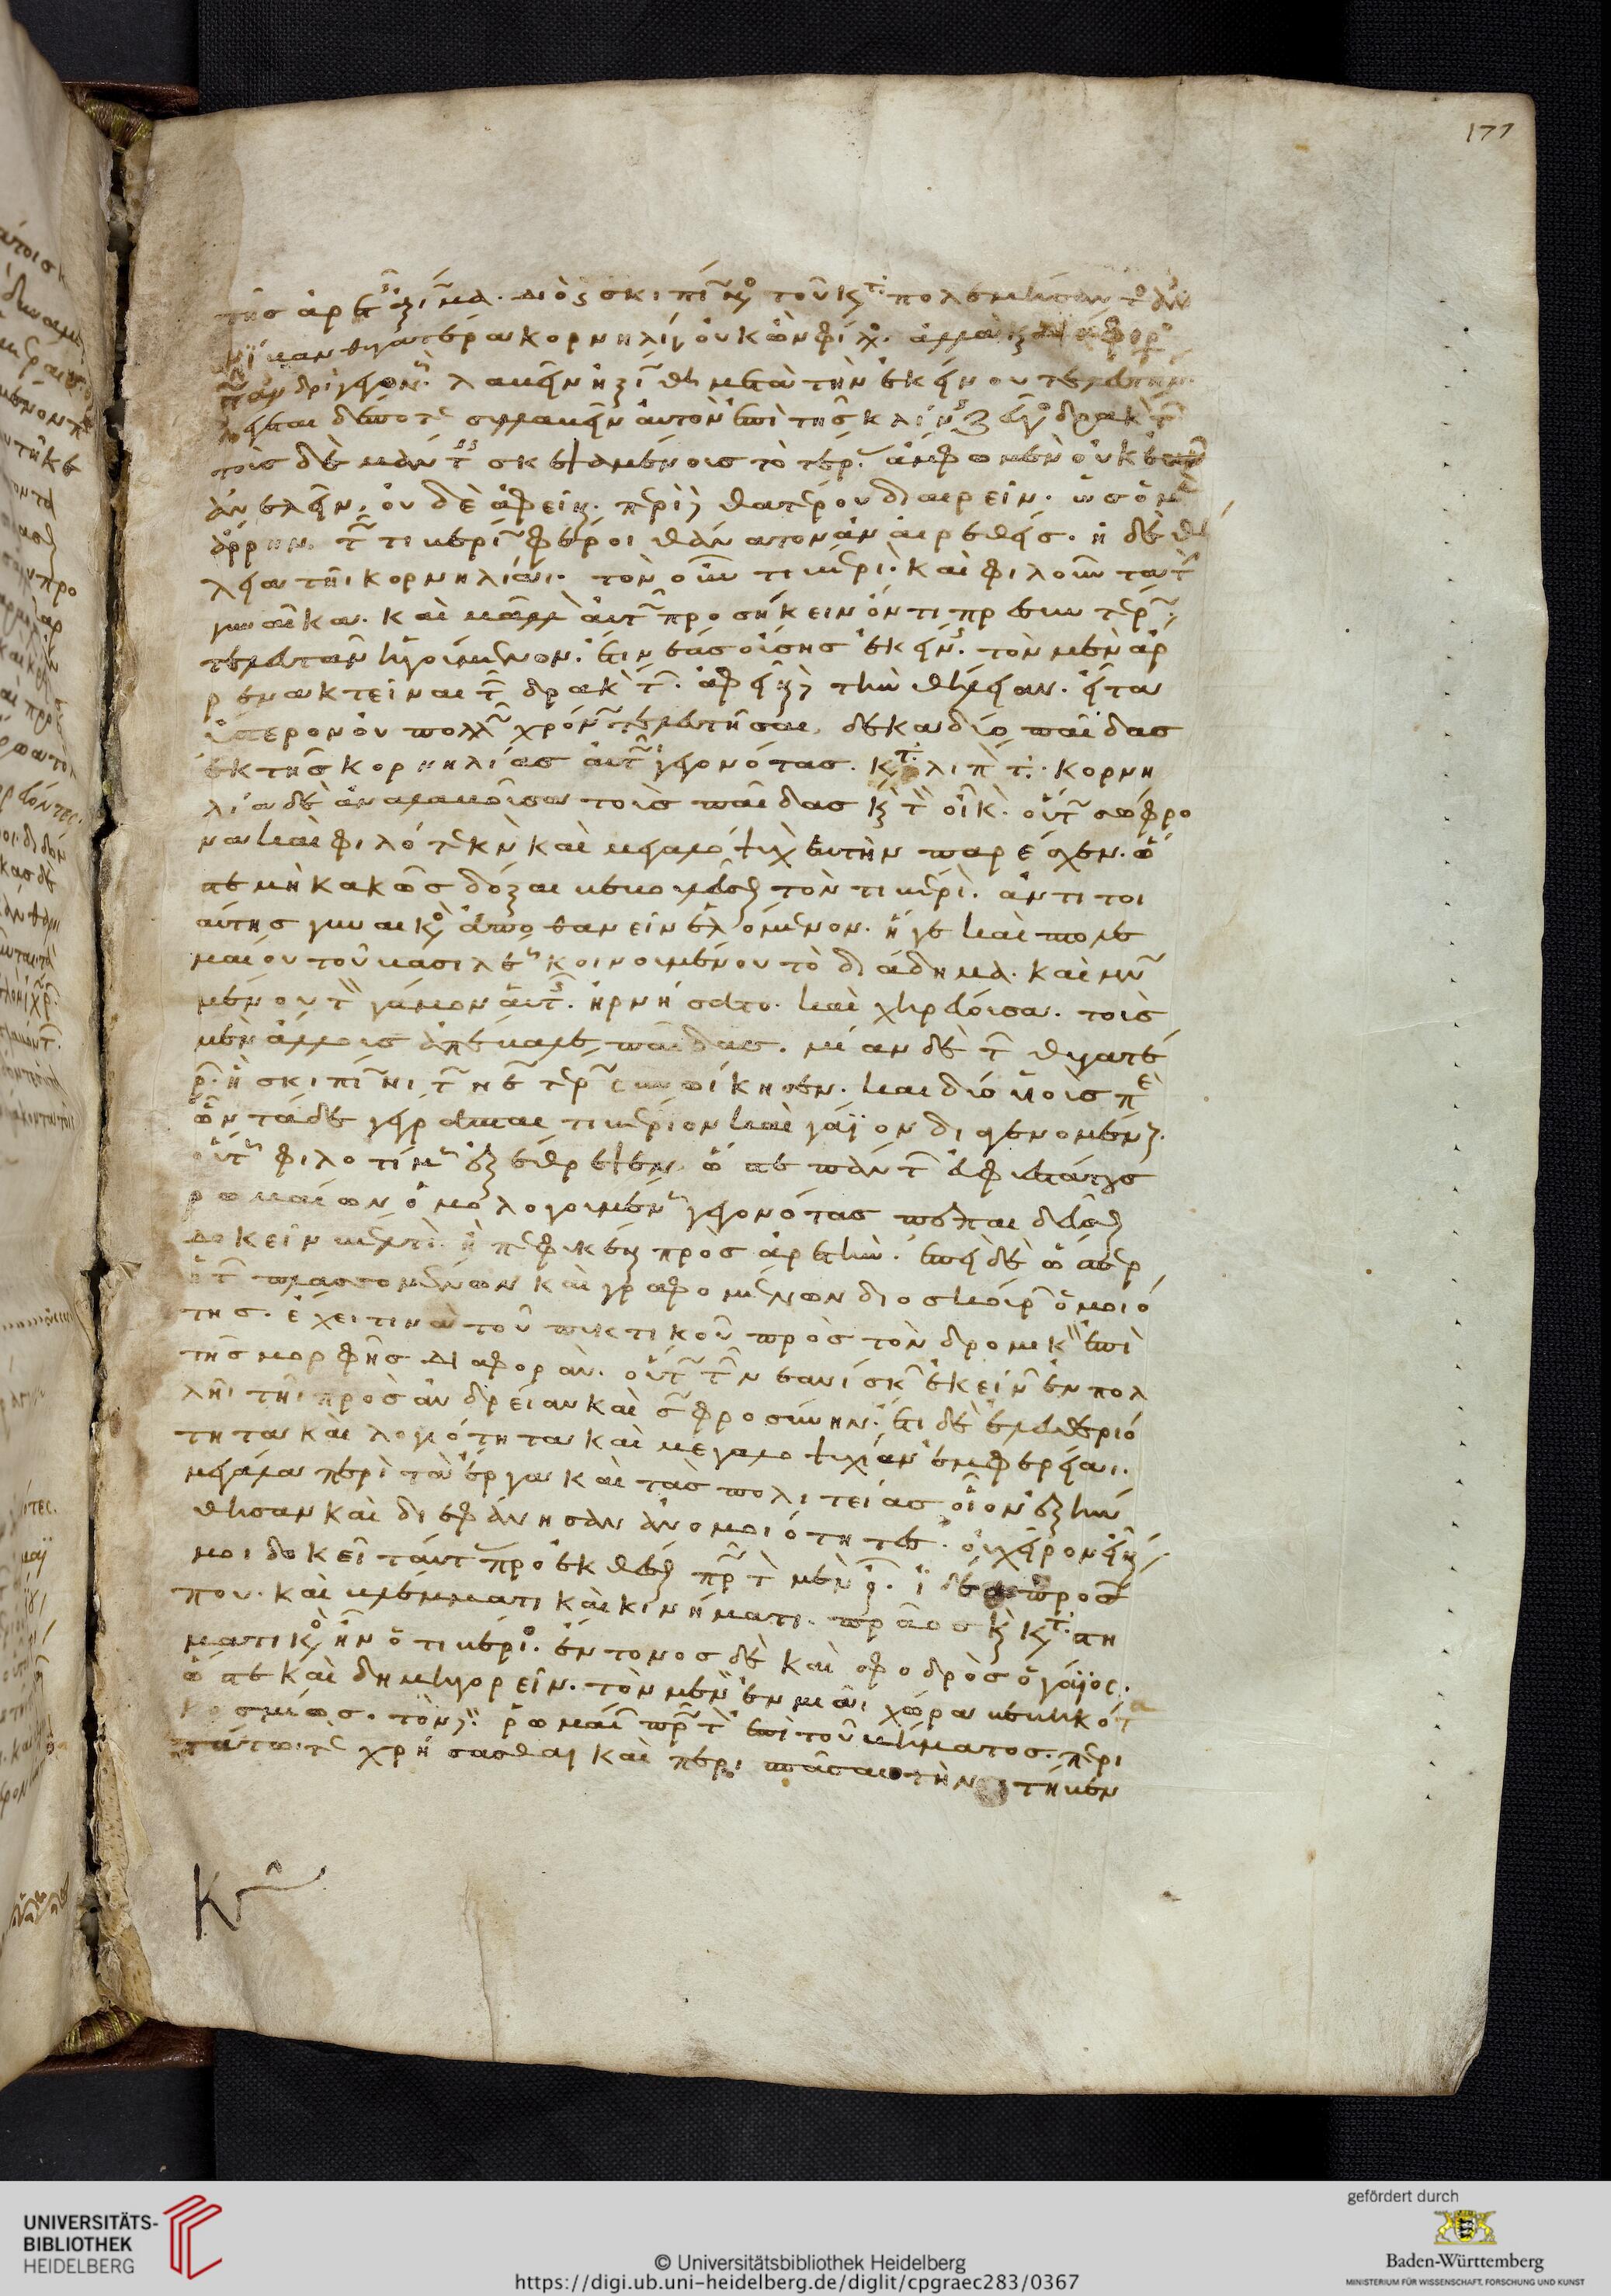 τῆς ἀρετῆς ἀξίωμα. διὸ σκιπίωνος τοῦ καταπολεμήσαντος ἀν
νίβαν θυγατέρα κορνηλίαν οὐκ ὢν φίλος. ἀλλὰ καὶ διάφορος
τῶ ἀνδρὶ γεγονώς. λαβεῖν ἠξιώθη μετὰ τὴν ἐκείνου τελευτήν.
λέγεται δέ ποτε συλλαβεῖν αὐτὸν ἐπὶ τῆς κλίνης ζεῦγος δρακόντων
τοὺς δὲ μάντεις σκεψαμένους τὸ τέρας. ἄμφω μὲν οὐκ ἐᾶν
ἀνελεῖν, οὐδὲ ἀφεῖναι. περὶ δὲ θατέρου διαιρεῖν. ὡς ὁ μὲν
ἄρρην τῶ τιβερίω φέροι θάνατον ἀναιρεθείς. ἡ δὲ θή
λεια τῆι κορνηλίαι. τὸν οὖν τιβέριον καὶ φιλοῦντα τὴν
γυναῖκα. καὶ μᾶλλον αὐτῶ προσήκειν ὄντι πρεσβυτέρω
τελευτᾶν ἡγούμενον. ἔτι νέας οὔσης ἐκείνης. τὸν μὲν ἄρ
ρενα κτεῖναι τῶν δρακόντων. ἀφεῖναι δὲ τὴν θήλειαν. εἶτα
ὕστερον οὐ πολλῶ χρόνω τελευτῆσαι. δεκαδύο παῖδας
ἐκ τῆς κορνηλίας αὐτῶ γεγονότας. καταλιπόντα. κορνη
λία δὲ ἀναλαβοῦσα τοὺς παῖδας καὶ τὸν οἶκον. οὕτω σώφρο
να καὶ φιλότεκνον καὶ μεγαλόψυχον ἑαυτὴν παρέσχεν. ὥ
στε μὴ κακῶς δόξαι βεβουλεῦσθαι τὸν τιβέριον. ἀντὶ τοι
αύτης γυναικὸς ἀποθανεῖν ἑλόμενον. ἥ γε καὶ πτολε
μαίου τοῦ βασιλέως κοινουμένου τὸ διάδημα. καὶ μνω
μένου τὸν γάμον αὐτῆς. ἠρνήσατο. καὶ χηρεύουσα. τοὺς
μὲν ἄλλους ἀπέβαλε παῖδας. μίαν δὲ τῶν θυγατέ
ρων. ἣ σκιπίωνι τῶ νεωτέρω συνώικησεν. καὶ δύο υἱοὺς περὶ
ὧν τάδε γέγραπται τιβέριον καὶ γάϊον διαγενομένους.
οὕτως φιλοτίμως ἐξέθρεψεν. ὥστε πάντων εὐφυεστάτους
ῥωμαίων ὁμολογουμένως γεγονότας πεπαιδεῦσθαι
δοκεῖν βέλτιον ἢ πεφυκέναι πρὸς ἀρετήν. ἐπεὶ δὲ ὥσπερ
ἡ τῶν πλασσομένων καὶ γραφομένων διοσκούρων ὁμοιό
της. ἔχει τινὰ τοῦ πυκτικοῦ πρὸς τὸν δρομικὸν ἐπὶ
τῆς μορφῆς διαφοράν. οὕτω τῶν νεανίσκων ἐκείνων ἐν πολ
λῆι τῆι πρὸς ἀνδρείαν καὶ σωφροσύνην. ἔτι δὲ ἐλευθεριό
τητα καὶ λογιότητα καὶ μεγαλοψυχίαν ἐμφερείαι.
μεγάλαι περὶ τὰ ἔργα καὶ τὰς πολιτείας οἷον ἐξήν
θησαν καὶ διεφάνησαν ἀνομοιότητες. οὐ χεῖρον εἶναί
μοι δοκεῖ ταύτας προεκθέσθαι πρῶτον μὲν οὖν. ἰδέα προσώ
που. καὶ βλέμματι καὶ κινήματι. πρᾶος καὶ καταστη
ματικὸς ἦν ὁ τιβέριος. ἔντονος δὲ καὶ σφοδρὸς ὁ γάϊος.
ὥστε καὶ δημηγορεῖν. τὸν μὲν ἐν μιᾶι χώρα βεβηκότα
κοσμίως. τὸν δὲ ῥωμαίων πρῶτον ἐπὶ τοῦ βήματος. περι
πάτω τε χρήσασθαι καὶ περισπάσαι τὴν τήβεν